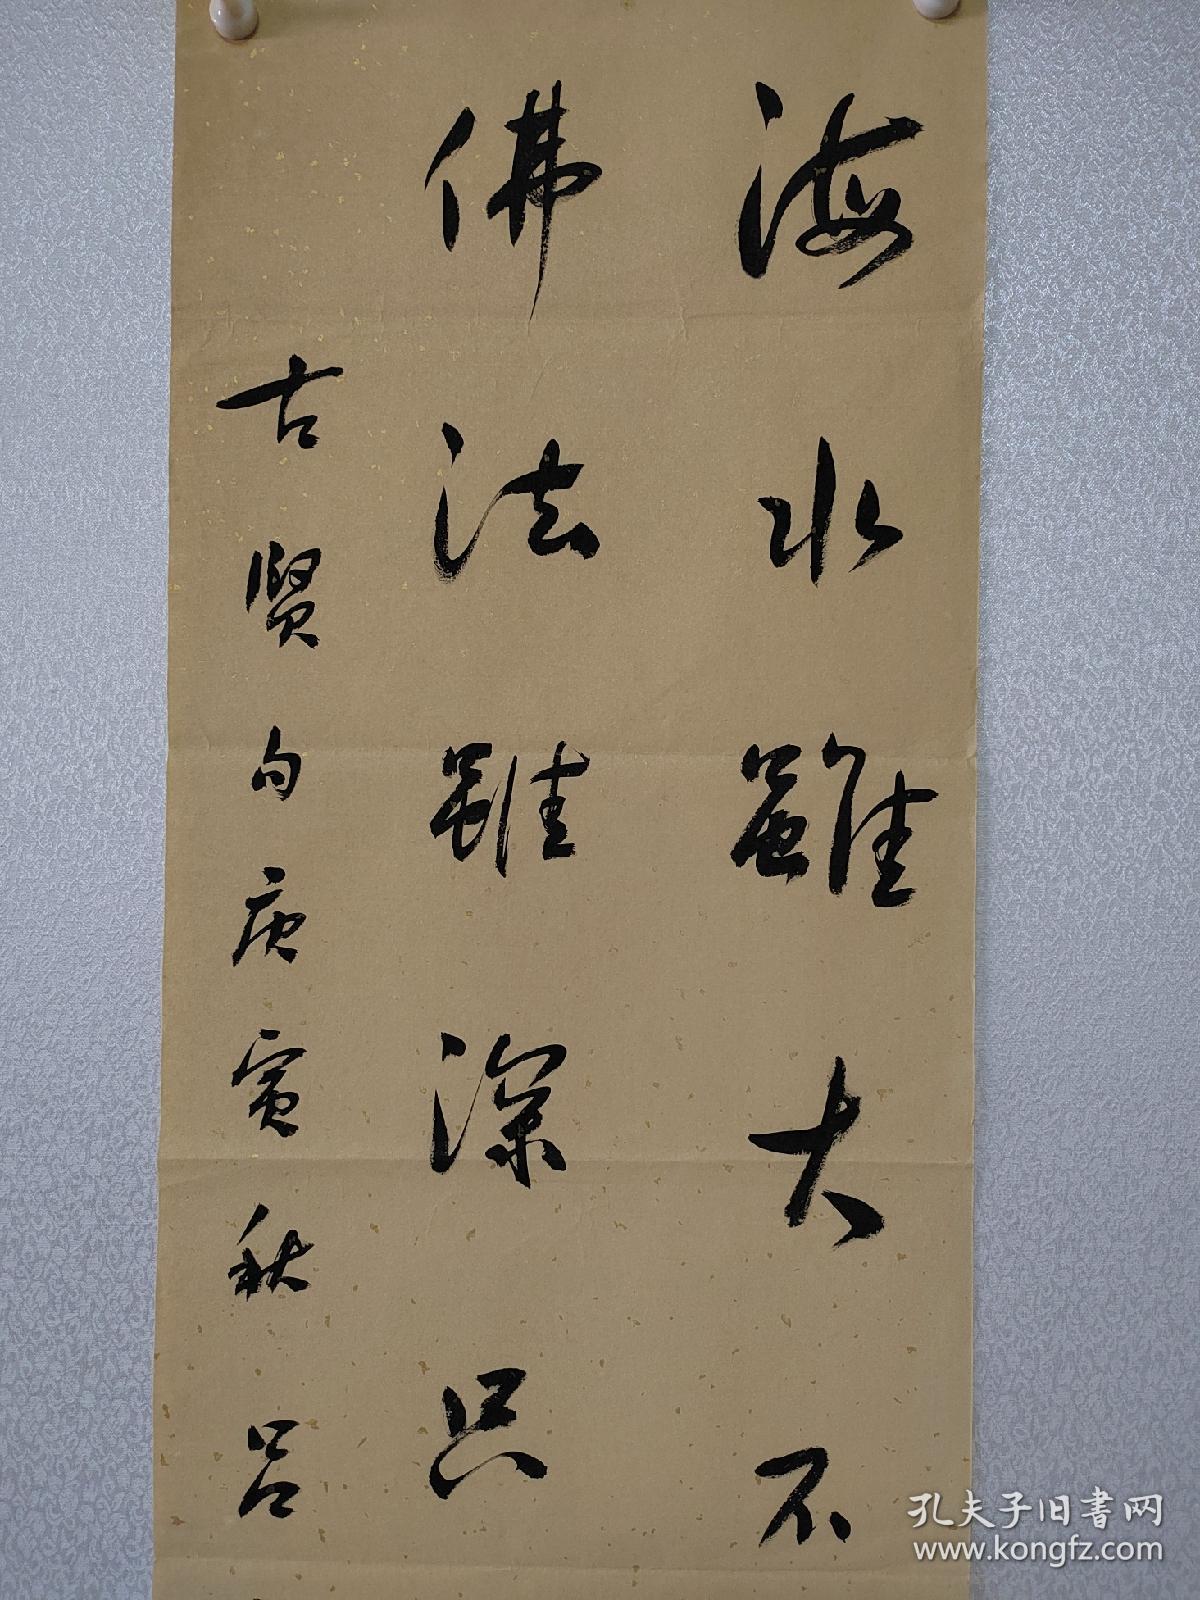 海水雖大不
佛法雖深只
古賢句庚寅秋吕
孔夫子旧書网
www.kongfz.com